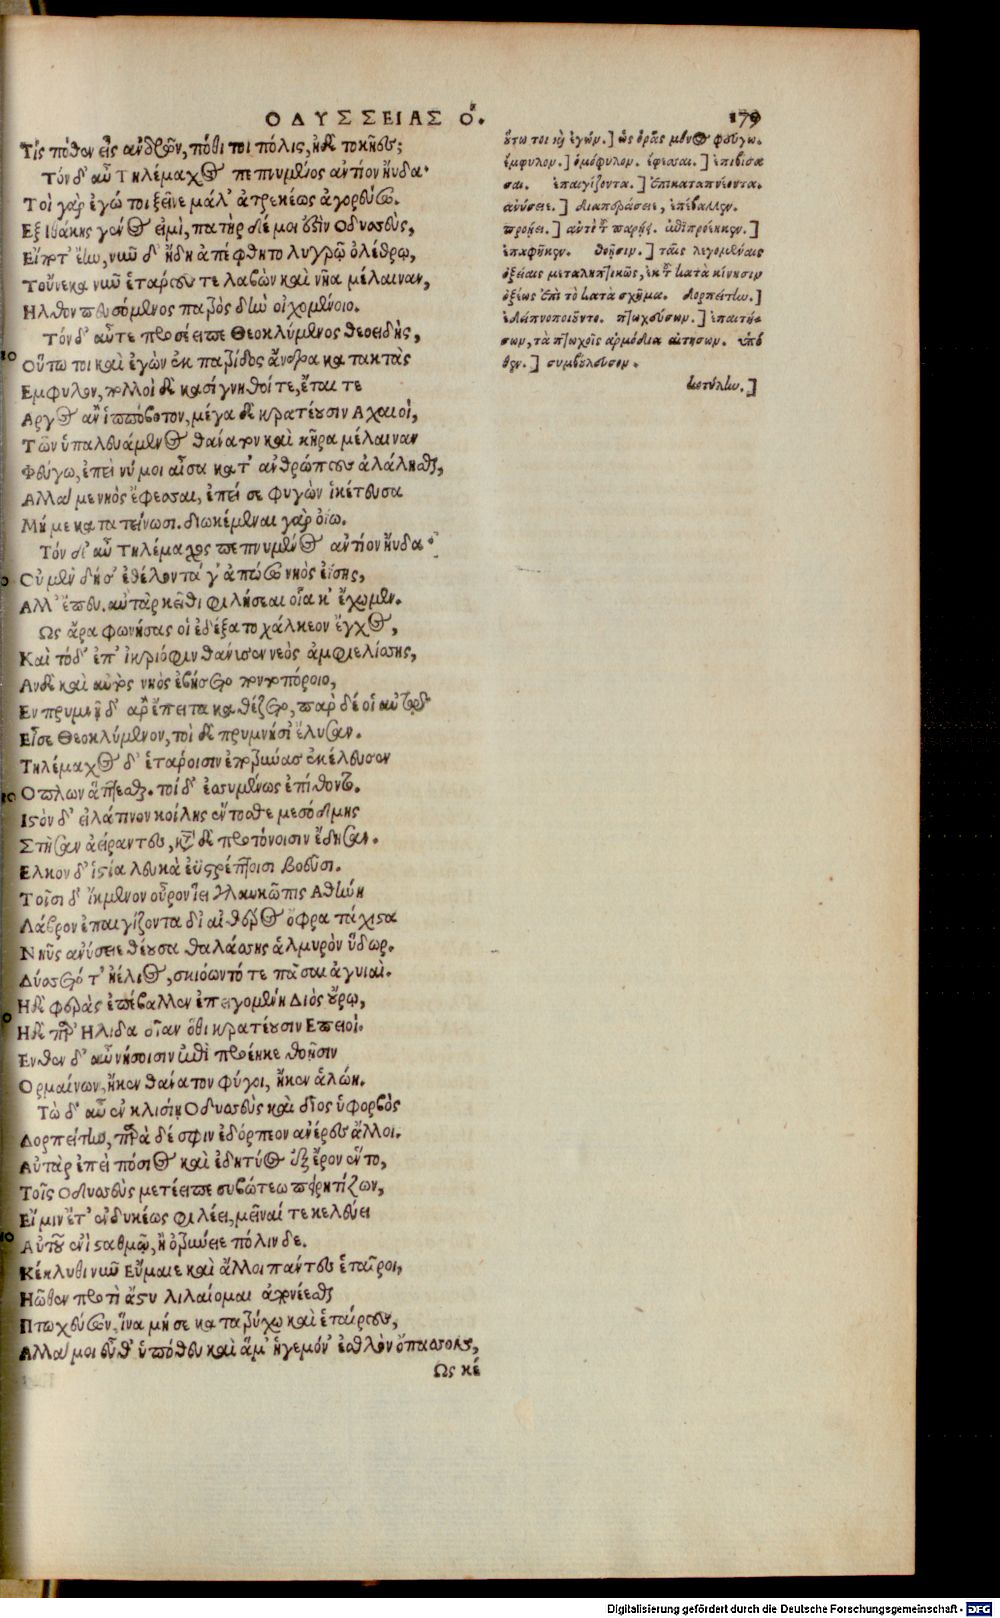 ΟΔΥΣΣΕΙΑΣ Ο.
179
Τίς πόθεν εἶς ἀνδρῶν, πόθι τοι πόλις, ἠδὲ τοκῆες;
Τόν δ' αὖ Τηλέμαχος πεπνυμένος ἀντίον ηὔδα·
Τοὶ γὰρ ἐγώ τοι ξεῖνε μάλ' ἀτρεκέως ἀγορεύσω.
Εξ Ιθάκης γένος εἰμὶ, πατὴρ δέ μοι ὅζιν Οδυσσεὺς,
Εἴ ποτ' ἔην, νῦν δ' ἤδη ἀπέφθιτο λυγρῷ ὀλέθρῳ,
Τοὔνεκα νῦν ἑτάρους τε λαβὼν καὶ νῆα μέλαιναν,
Ηλθον πευσόμενος πατρὸς δὴν οἰχομένοιο.
Τόν δ' αὖτε προσέειπε Θεοκλύμενος θεοειδὴς,
Οὕτω τοι καὶ ἐγὼν ἐκ πατρίδος ἄνδρα κατακτὰς
Εμφυλον, πολλοὶ δὲ κασίγνητοί τε, ἔται τε
Αργος ἀν' ἱππόβοτον, μέγα δὲ κρατέουσιν Αχαιοὶ,
Τῶν ὑπαλευάμενος θάνατον καὶ κῆρα μέλαιναν
Φεύγω, ἐπεὶ νύ μοι αἶσα κατ' ἀνθρώπους ἀλάλησθαι,
Αλλά με νηὸς ἔφεσσαι, ἐπεί σε φυγὼν ἱκέτευσα
Μή με κατακτείνωσι. διωκέμεναι γὰρ ὀΐω.
Τόν δ' αὖ Τηλέμαχος πεπνυμένος ἀντίον ηὔδα·
Οὐ μὲν δή σ' ἐθέλοντά γ' ἀπώσω νηὸς ἐΐσης,
Αλλ' ἕπευ. αὐτὰρ κεῖθι φιλήσεαι οἷά κ' ἔχωμεν.
Ως ἄρα φωνήσας οἱ ἐδέξατο χάλκεον ἔγχος,
Καὶ τόδ' ἐπ' ἰκριόφιν θάνυσεν νεὸς ἀμφιελίσσης,
Αν δὲ καὶ αὐτὸς νηὸς ἐβήσετο ποντοπόροιο,
Εν πρυμνῇ δ' ἂρ ἔπειτα καθέζετο, παρ δέ οἱ αὐτὸν
Εἷσε Θεοκλύμενον, τοὶ δὲ πρυμνήσι' ἔλυσαν.
Τηλέμαχος δ' ἑτάροισιν ἐποτρύνας ἐκέλευσεν
Οπλων ἅπτεσθαι. τοὶ δ' ἐσσυμένως ἐπίθοντο.
Ιστὸν δ' εἰλάτινον κοίλης ἔντοσθε μεσόδμης
Στῆσαν ἀείραντες, κατὰ δὲ προτόνοισιν ἔδησαν.
Ελκον δ' ἱστία λευκὰ ἐϋστρέπτοισι βοεῦσι.
Τοῖσι δ' ἴκμενον οὖρον ἵει γλαυκῶπις Αθήνη
Λάβρον ἐπαιγίζοντα δι' αἰθέρος ὄφρα τάχιστα
Νηῦς ἀνύσειε θέουσα θαλάσσης ἁλμυρὸν ὕδωρ.
Δύσετό τ' ἠέλιος, σκιόωντό τε πᾶσαι ἀγυιαί.
Ηδὲ φερὰς ἐπέβαλλεν ἐπειγομένη Διὸς οὔρῳ,
Ηδὲ παρ' Ηλιδα δῖαν ὅθι κρατέουσιν Επειοὶ.
Ενθεν δ' αὖ νήσοισιν ἐπὶ προέηκε θοῇσιν
Ορμαίνων, ἤκεν θάνατον φύγοι, ἤκεν ἁλώη.
Τὼ δ' αὖ ἐν κλισίῃ Οδυσσεὺς καὶ δῖος ὑφορβὸς
Δορπείτην, παρὰ δέ σφιν ἐδόρπεον ἀνέρες ἄλλοι.
Αὐτὰρ ἐπεὶ πόσιος καὶ ἐδητύος ἐξ ἔρον ἕντο,
Τοῖς Οδυσεὺς μετέειπε συβώτεω πειρητίζων,
Εἴ μιν ἔτ' ἐνδυκέως φιλέει, μεῖναί τε κελεύει
Αὐτοῦ ἐνὶ σταθμῷ, ἢ ὀτρύνειε πόλιν δε.
Κέκλυθι νῦν Εὔμαιε καὶ ἄλλοι πάντες ἑταῖροι,
Ηῶθεν προτὶ ἄστυ λιλαίομαι ἀπονέεσθαι
Πτωχεύσων, ἵνα μή σε κατατρύχω καὶ ἑταίρους,
Αλλά μοι εὖθ' ὑπόθευ καὶ ἅμ' ἡγεμόν' ἐσθλὸν ὄπασσον,
Ως κέ
οὕτω τοι καὶ ἐγών.] ὡς ὁρᾷς μόνος φεύγω.
ἔμφυλον.] ὁμόφυλον. ἔφεσσαι.] ἐπιβίσα
σαι. ἐπαιγίζοντα.] ἐπικαταπνέοντα.
ἀνύσειε.] διαπεράσειε, ἐπέβαλλεν.
προσῄει.] ἀντὶ τοῦ παρῄει. ἐπιπροέηκεν.]
ἐπαφῆκεν. θοῇσιν.] ταῖς λεγομέναις
ὀξείαις μεταληπτικῶς, ἐκ τοῦ κατὰ κίνησιν
ὀξέως ἐπὶ τὸ κατὰ σχῆμα. δορπείτην.]
ἐδειπνοποιοῦντο. πτωχεύσων.] ἐπαιτή-
σων, τὰ πτωχοῖς ἁρμόδια αἰτήσων. ὑπό
θευ.] συμβούλευσον.
κοτύλην.]
10
10
Digitalisierung gefördert durch die Deutsche Forschungsgemeinschaft - DFG